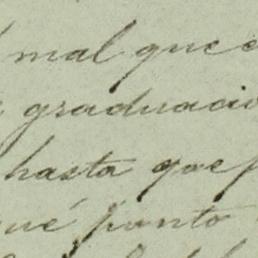 mal que
graduació
hasta que
qué punto